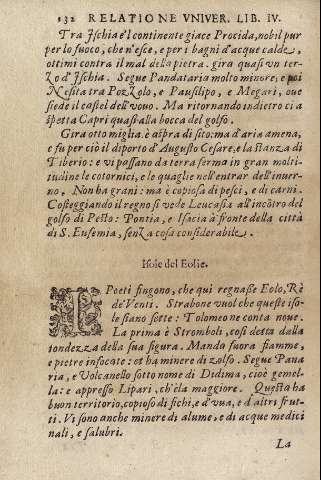 132 RELATIONE VNIVER. LIB. IV.
Tra Ischia e'l continente giace Procida, nobil pur
per lo fuoco, che n'esce, e per i bagni d'acque calde,
ottimi contra il mal della pietra. gira quasi vn ter-
zo d'Ischia. Segue Pandataria molto minore, e poi
Nesita tra Pozzolo, e Pausilipo, e Megari, oue
siede il castel dell'vouo. Ma ritornando indietro ci a
spetta Capri quasi alla bocca del golfo.
Gira otto miglia. è aspra di sito: ma d'aria amena,
e fu per ciò il diporto d'Augusto Cesare, e la stanza di
Tiberio: e vi passano da terra ferma in gran molti-
tudine le cotornici, e le quaglie nell'entrar dell'inuer-
no. Non ha grani: ma è copiosa di pesci, e di carni.
Costeggiando il regno si vede Leucasia all'incõtro del
golfo di Pesto: Pontia, e Isacia à fronte della città
di S. Eufemia, senza cosa considerabile.
Isole del Eolie.
I Poeti fingono, che qui regnasse Eolo, Rè
de'Venti. Strabone vuol che queste iso-
le siano sette: Tolomeo ne conta noue.
La prima è Stromboli, così detta dalla
tondezza della sua figura. Mando fuora fiamme,
e pietre infocate: et ha minere di zolfo. Segue Pana
ria, e Volcanello sotto nome di Didima, cioè gemel-
la: e appresso Lipari, ch'è la maggiore. Questa ha
buon territorio, copioso di fichi, e d'vua, e d'altri frut-
ti. Vi sono anche minere di alume, e di acque medici
nali, e salubri.
La